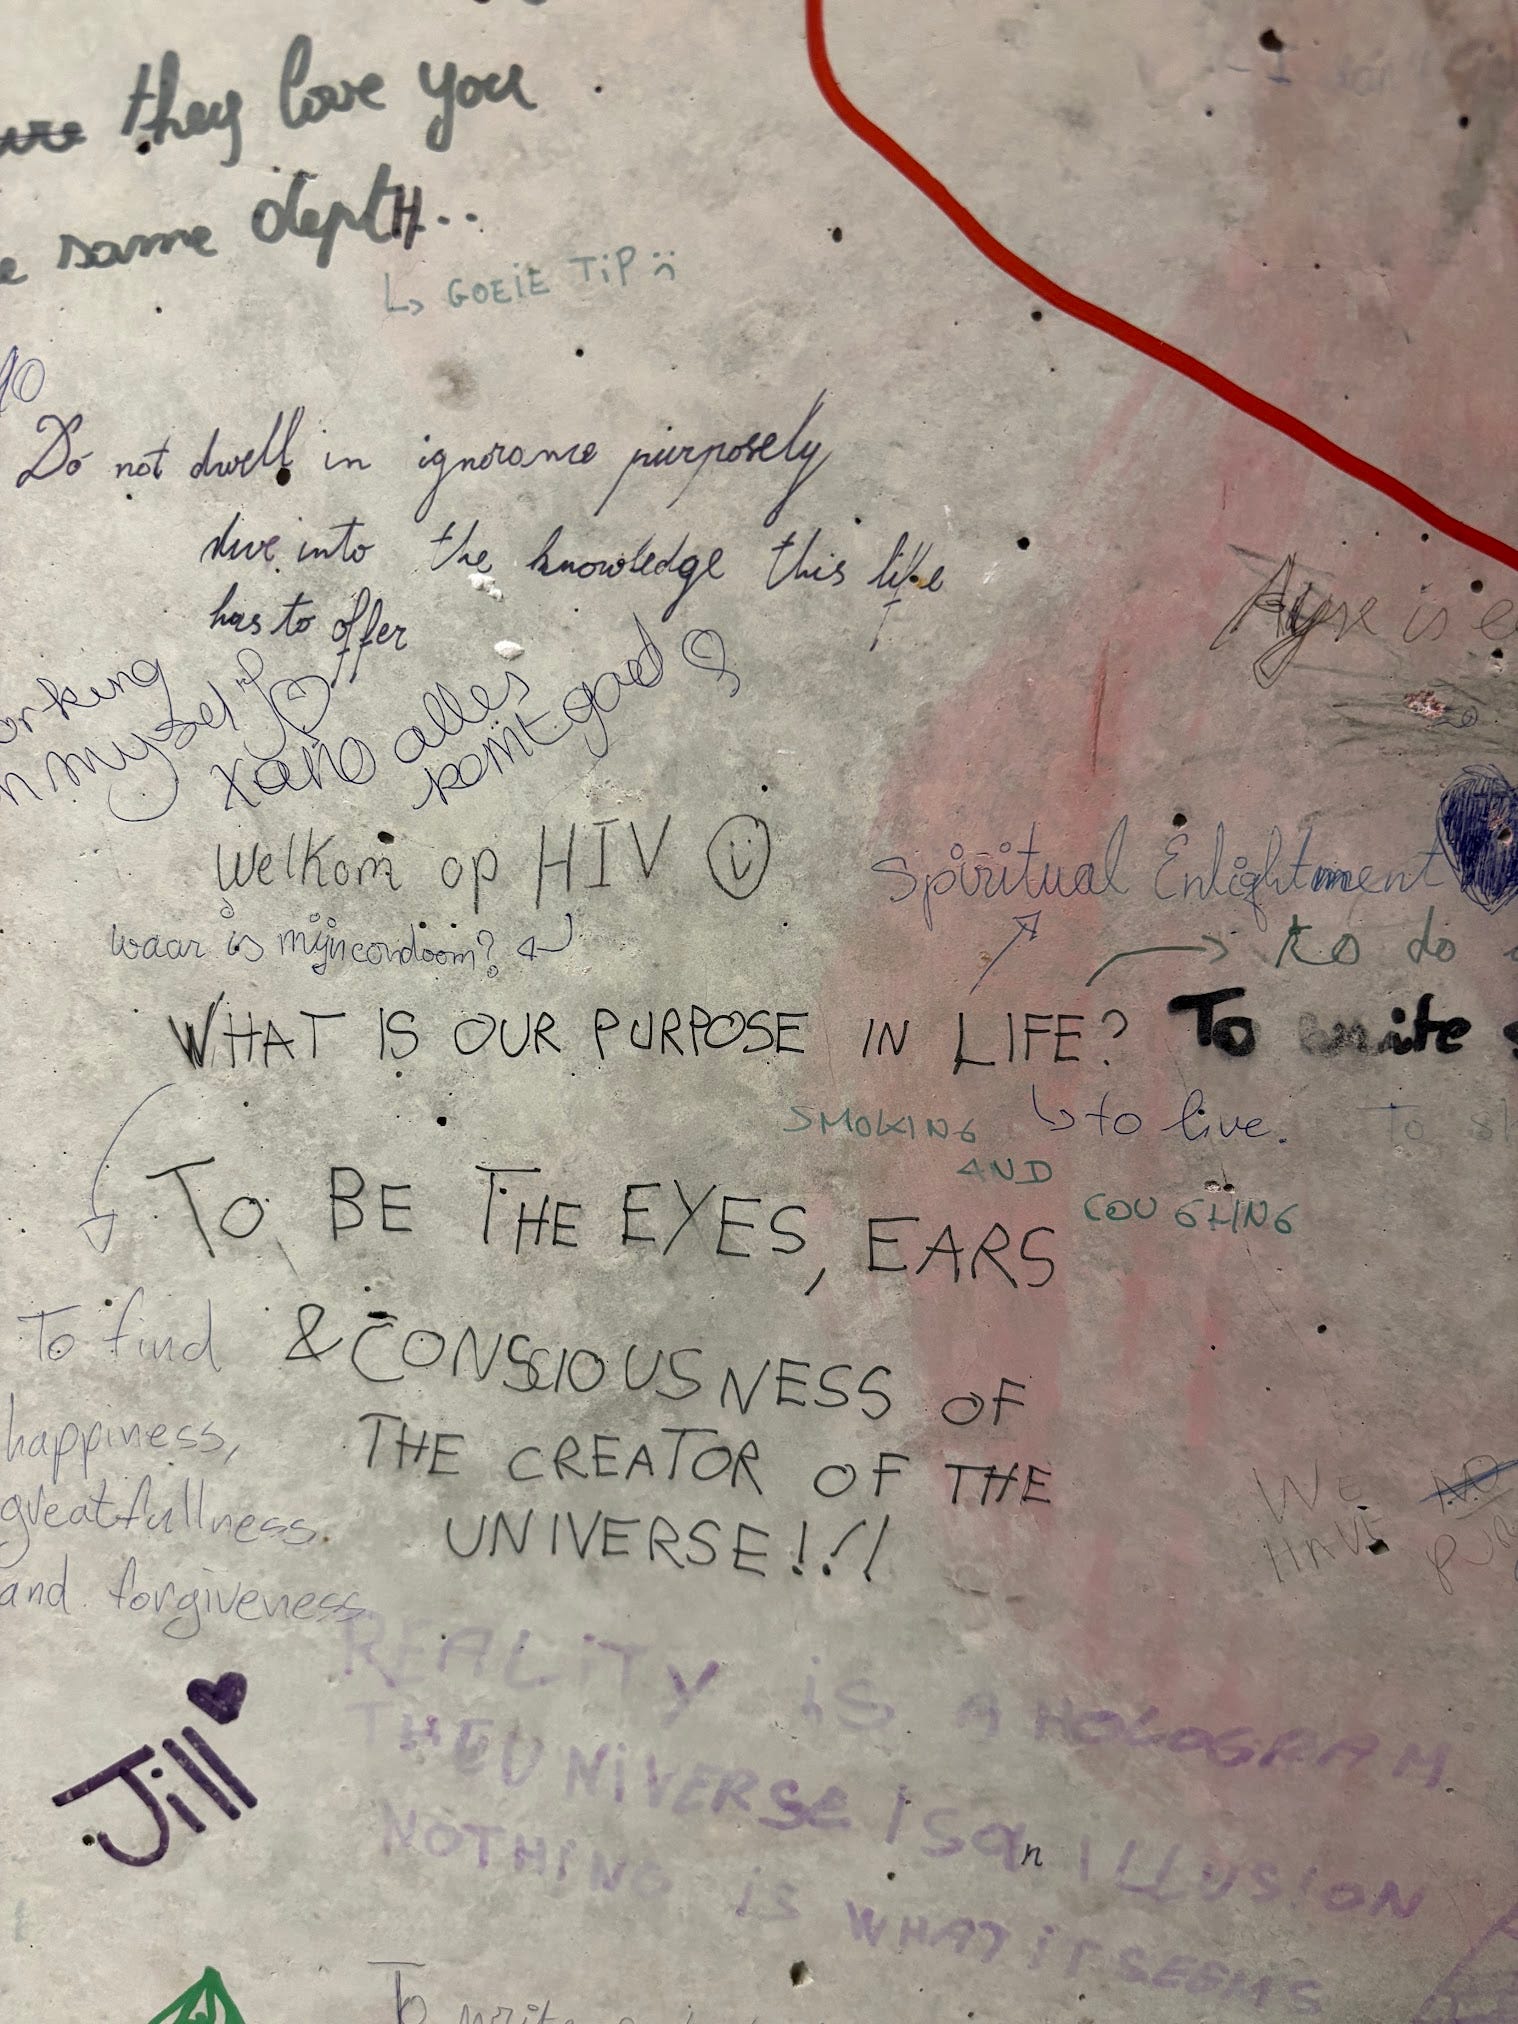 they love you
same deptH..
↳ GOEIE TIP :(
Do not dwell in ignorance purposely
dive into the knowledge this life
has to offer
working
myself
xano alles
komt goed
Welkom op HIV
waar is mijn condoom?
Spiritual Enlightment
to do
WHAT IS OUR PURPOSE IN LIFE? To write
SMOKING
AND
COUGHING
↳ to live.
To
TO BE THE EYES, EARS
& CONSCIOUSNESS OF
THE CREATOR OF THE
UNIVERSE!!!
To find
happiness,
greatfullness
and forgiveness
WE NO
HAVE
REALITY is A HOLOGRAM
THE UNIVERSE IS an ILLUSION
NOTHING is WHAT iT SEEMS
Jill
To write